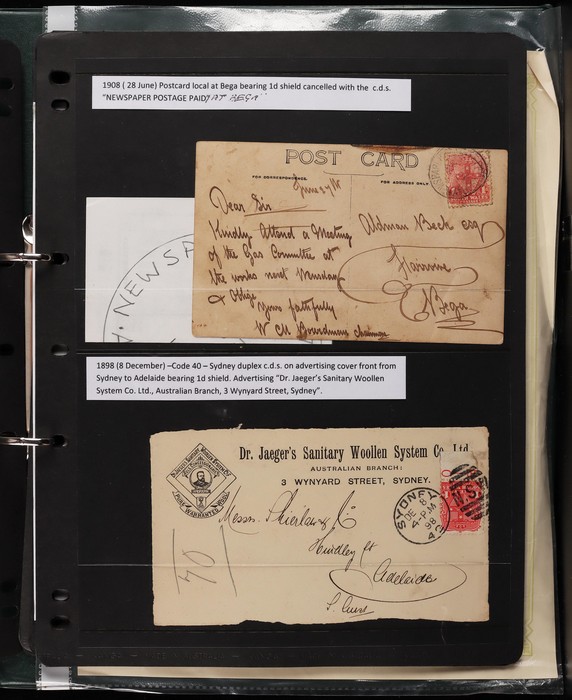 1908 ( 28 June) Postcard local at Bega bearing 1d shield cancelled with the c.d.s.
"NEWSPAPER POSTAGE PAID/AT BEGA"
POST CARD
FOR CORRESPONDENCE.
FOR ADDRESS ONLY.
June 27th
Dear Sir
Kindly Attend a Meeting
of the Gas Committee at
the works next Wensday
& Oblige
Yours faithfully
W CH Boardman chairman
Aldman Beck esq
Bega
NEWSPA
1898 (8 December) –Code 40 – Sydney duplex c.d.s. on advertising cover front from
Sydney to Adelaide bearing 1d shield. Advertising "Dr. Jaeger's Sanitary Woollen
System Co. Ltd., Australian Branch, 3 Wynyard Street, Sydney".
Dr. Jaeger's Sanitary Woollen System Co. Ltd.
AUSTRALIAN BRANCH:
3 WYNYARD STREET, SYDNEY.
PURE
WARRANTED
WOOL
SYDNEY
DE 8
4-PM
98
N.S.W
Messrs. Shierlaw & Co
Hindley St
Adelaide
S. Aus
70